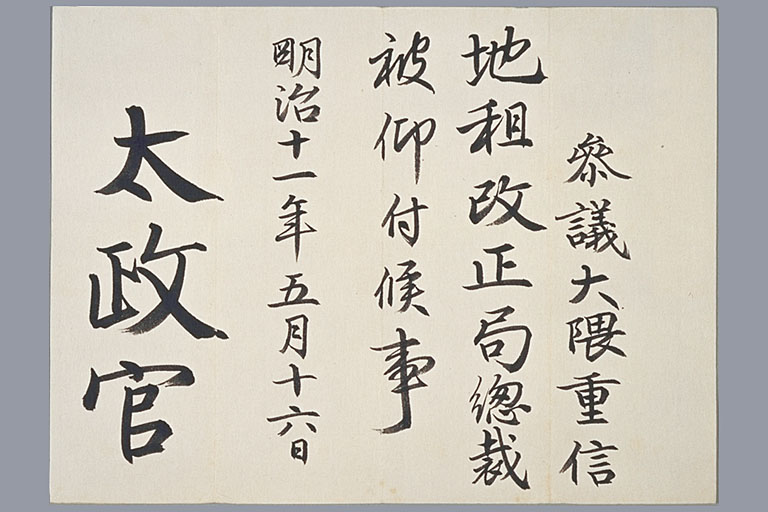 參議大隈重信
地租改正局總裁
被仰付候事
明治十一年五月十六日
太政官